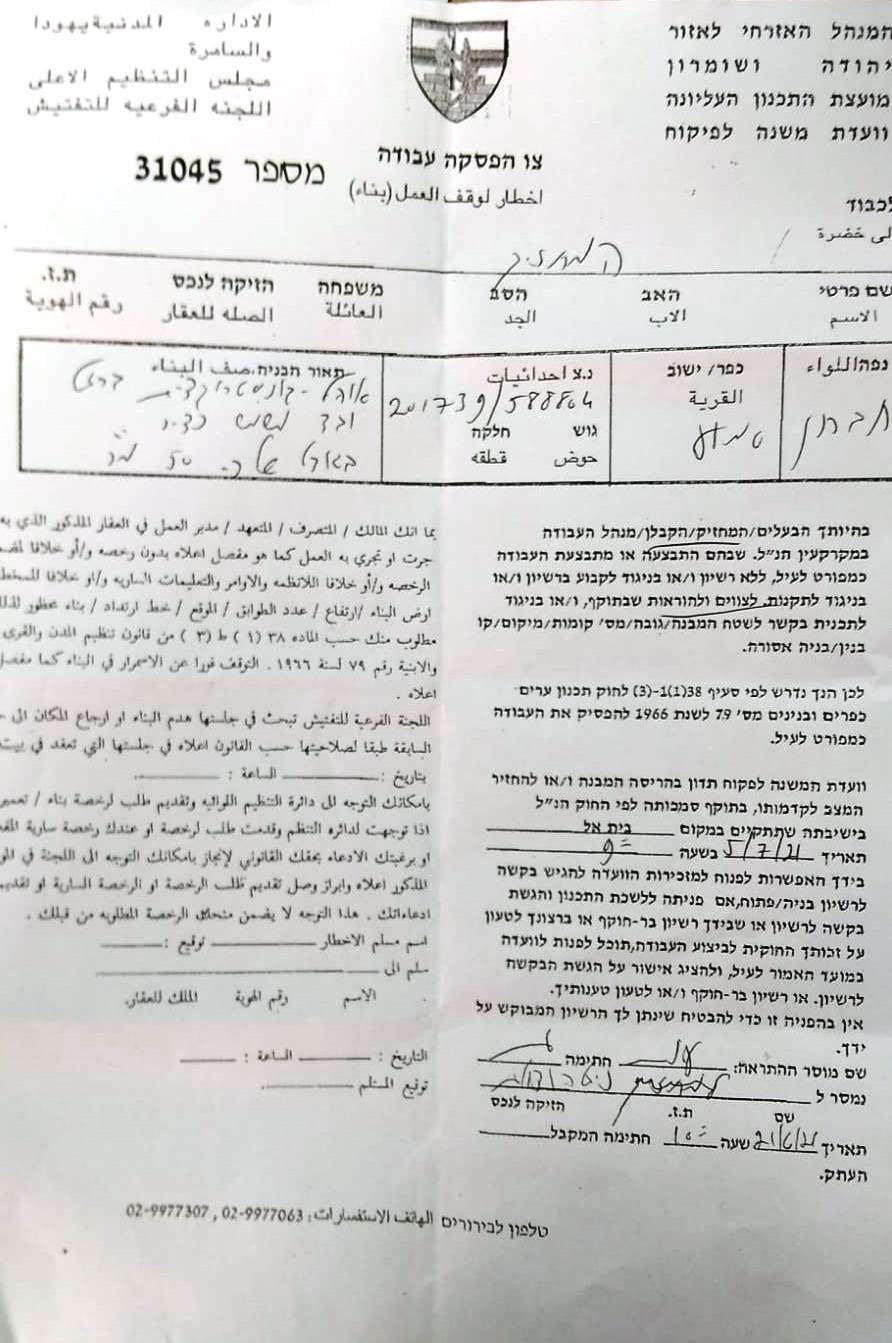 המנהל האזרחי לאזור
יהודה ושומרון
מועצת התכנון העליונה
וועדת משנה לפיקוח
الاداره المدنية يهودا
والسامرة
مجلس التنظيم الاعلى
اللجنه الفرعيه للتفتيش
צו הפסקה עבודה
מספר 31045
اخطار لوقف العمل (بناء)
לכבוד
لى حضرة
המחזיק
שם פרטי האב הסב משפחה הזיקה לנכס ת.ז.
الاسم الاب الجد العائلة الصله للعقار رقم الهوية
נפה اللواء
חברון
כפר/ ישוב
القرية
נ.צ احداثيات
201739/588864
גוש חלקה
حوض قطقه
תאור הבניה, صف البناء
בהיותך הבעלים/המחזיק/הקבלן/מנהל העבודה
במקרקעין הנ״ל. שבהם התבצעה או מתבצעת העבודה
כמפורט לעיל, ללא רשיון ו/או בניגוד לקבוע ברשיון ו/או
בניגוד לתקנות, לצווים ולהוראות שבתוקף, ו/או בניגוד
לתכנית בקשר לשטח המבנה/גובה/מס׳ קומות/מיקום/קו
בנין/בניה אסורה.
לכן הנך נדרש לפי סעיף 38(1)-(3) לחוק תכנון ערים
כפרים ובנינים מס׳ 79 לשנת 1966 להפסיק את העבודה
כמפורט לעיל.
וועדת המשנה לפקוח תדון בהריסה המבנה ו/או להחזיר
המצב לקדמותו, בתוקף סמכותה לפי החוק הנ״ל
בישיבתה שתתקיים במקום בית אל
תאריך 5/7/21 בשעה 9
בידך האפשרות לפנות למזכירות הוועדה להגיש בקשה
לרשיון בניה/פתוח, אם פניתה ללשכת התכנון והגשת
בקשה לרשיון או שבידך רשיון בר-חוקף או ברצונך לטעון
על זכותך החוקית לביצוע העבודה, תוכל לפנות לוועדה
במועד האמור לעיל, ולהציג אישור על הגשת הבקשה
לרשיון. או רשיון בר-חוקף ו/או לטעון טענותיך.
אין בהפניה זו כדי להבטיח שינתן לך הרשיון המבוקש על
ידך.
שם מוסר ההתראה: חתימה
נמסר ל
שם ת.ז. הזיקה לנכס
תאריך 21/6/21 שעה 10 חתימה המקבל
העתק.
بما انك المالك / المتصرف / المتعهد / مدير العمل في العقار المذكور الذي به
جرت او تجري به العمل كما هو مفصل اعلاه بدون رخصه و/أو خلافا
الرخصه و/أو خلافا للانظمه والاوامر والتعليمات الساريه و/او خلافا
ارض البناء /ارتفاع / عدد الطوابق / الموقع / خط ارتداد / بناء محظور
مطلوب منك حسب الماده ٣٨ (١) ط (٣) من قانون تنظيم المدن والقرى
والابنية رقم ٧٩ لسنة ١٩٦٦. التوقف فورا عن الاستمرار في البناء كما
اعلاه .
اللجنة الفرعية للتفتيش تبحث في جلستها هدم البناء او ارجاع المكان الى
السابقة طبقا لصلاحيتها حسب القانون اعلاه في جلستها التي تعقد في بيت
بتاريخ : الساعة :
بامكانك التوجه الى دائرة التنظيم اللوائيه وتقديم طلب لرخصة بناء /
اذا توجهت لدائره التنظم وقدمت طلب لرخصة او عندك رخصة سارية
او برغبتك الادعاء بحقك القانوني لإنجاز بامكانك التوجه الى اللجنة في
المذكور اعلاه وابراز وصل تقديم طلب الرخصة او الرخصة السارية او
ادعاءاتك . هذا التوجه لا يضمن منحك الرخصة المطلوبه من قبلك .
اسم مسلم الاخطار توقيع :
سلم الى
الاسم رقم الهوية الملك للعقار.
التاريخ : الساعة :
توقيع المستلم
טלפון לבירורים الهاتف الاستفسارات: 02-9977063 , 02-9977307